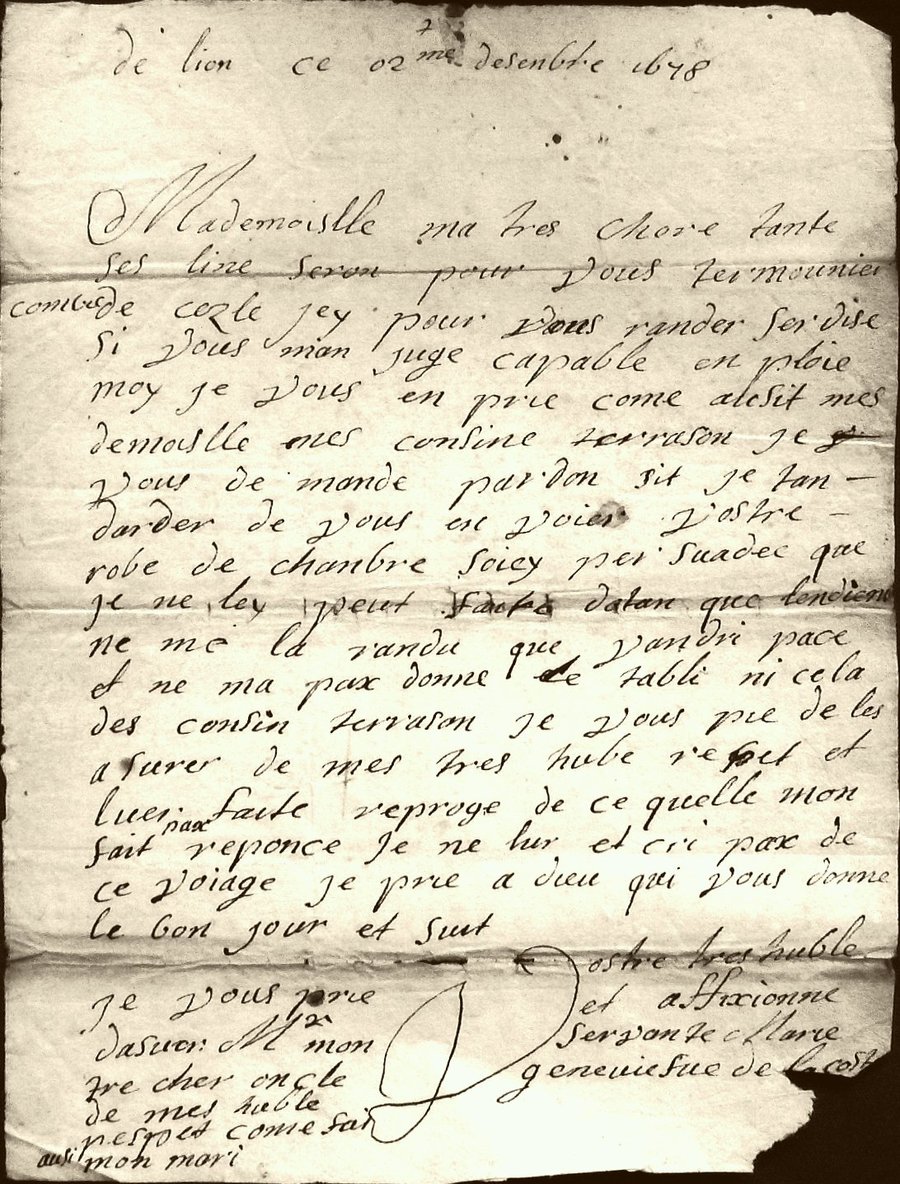 de lion ce 02me desenbre 1678
Mademoislle ma tres chore tante
ses line seron pour vous termounier
combe de cezle jey pour vous rander servise
si vous man juge capable en ploie
moy je vous en prie come ausit mes
demoislle mes consine terrason je
vous de mande pardon sit je tan
darder de vous en voier vostre
robe de chanbre soiey per suadee que
je ne ley peut faite datan que lendiene
ne me la randu que vandri pace
et ne ma pax donne le tabli ni cela
des consin terrason je vous prie de les
asurer de mes tres huble respet et
luer faite reproge de ce quelle mon
fait pax reponce je ne lur et cri pax de
ce voiage je prie a dieu qui vous donne
le bon jour et suit
Vostre tres huble
et affixionne
servante Marie
geneviesve de la cost
je vous prie
dasurer Mr mon
tre cher oncle
de mes huble
respet come fait
ausi mon mari